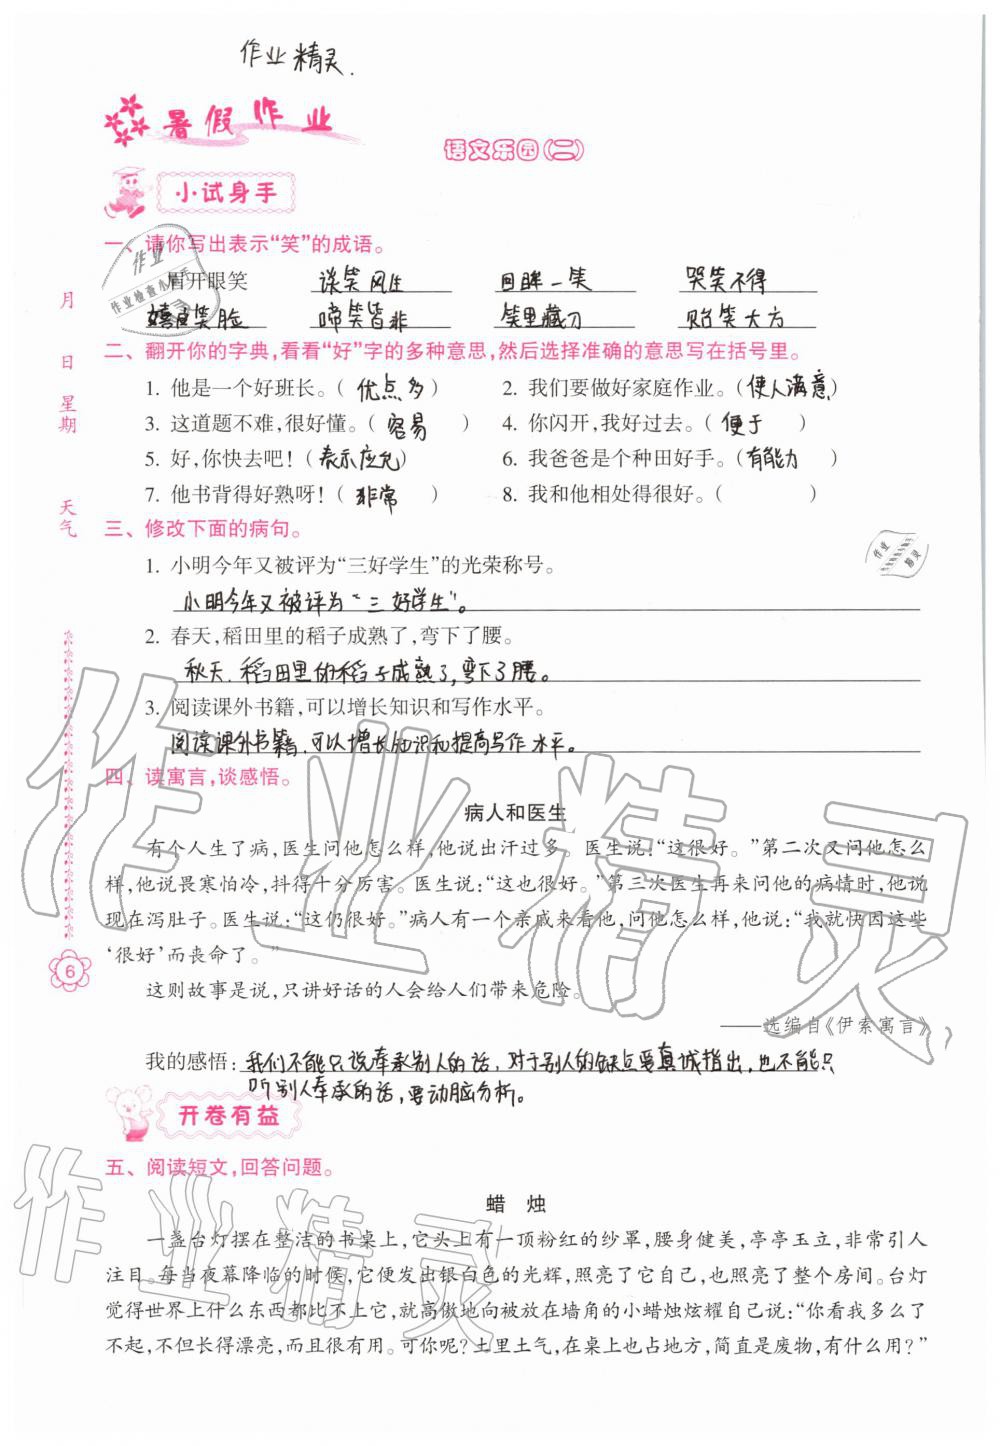 作业精灵.
暑假作业
语文乐园(二)
小试身手
一、请你写出表示“笑”的成语。
眉开眼笑 谈笑风生 回眸一笑 哭笑不得
嬉皮笑脸 啼笑皆非 笑里藏刀 贻笑大方
二、翻开你的字典,看看“好”字的多种意思,然后选择准确的意思写在括号里。
1. 他是一个好班长。( 优点多 ) 2. 我们要做好家庭作业。(使人满意)
3. 这道题不难,很好懂。( 容易 ) 4. 你闪开,我好过去。( 便于 )
5. 好,你快去吧!(表示应允) 6. 我爸爸是个种田好手。(有能力 )
7. 他书背得好熟呀!( 非常 ) 8. 我和他相处得很好。( )
三、修改下面的病句。
1. 小明今年又被评为“三好学生”的光荣称号。
小明今年又被评为“三好学生”。
2. 春天,稻田里的稻子成熟了,弯下了腰。
秋天,稻田里的稻子成熟了,弯下了腰。
3. 阅读课外书籍,可以增长知识和写作水平。
阅读课外书籍,可以增长知识和提高写作水平。
四、读寓言,谈感悟。
病人和医生
有个人生了病,医生问他怎么样,他说出汗过多。医生说:“这很好。”第二次又问他怎么
样,他说畏寒怕冷,抖得十分厉害。医生说:“这也很好。”第三次医生再来问他的病情时,他说
现在泻肚子。医生说:“这仍很好。”病人有一个亲戚来看他,问他怎么样,他说:“我就快因这些
‘很好’而丧命了。”
这则故事是说,只讲好话的人会给人们带来危险。
——选编自《伊索寓言》
我的感悟:我们不能只说奉承别人的话,对于别人的缺点要真诚指出,也不能只
听别人奉承的话,要动脑分析。
开卷有益
五、阅读短文,回答问题。
蜡 烛
一盏台灯摆在整洁的书桌上,它头上有一顶粉红的纱罩,腰身健美,亭亭玉立,非常引人
注目。每当夜幕降临的时候,它便发出银白色的光辉,照亮了它自己,也照亮了整个房间。台灯
觉得世界上什么东西都比不上它,就高傲地向被放在墙角的小蜡烛炫耀自己说:“你看我多么了
不起,不但长得漂亮,而且很有用。可你呢?土里土气,在桌上也占地方,简直是废物,有什么用?”
月
日
星期
天气
6
作业
作业检查小助手
作业
精灵
作业精灵
作业精灵